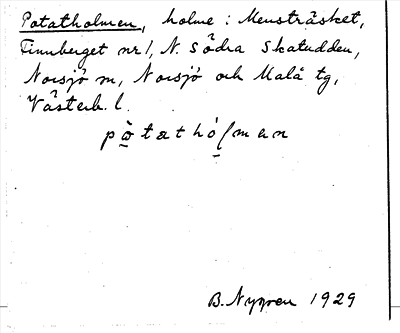 Potatholmen, holme: Mensträsket,
Finnberget nr 1, N. Södra Skatudden,
Norsjö sn, Norsjö och Malå tg,
Västerb. l.
pò̱tathó̱lman
B. Nygren 1929